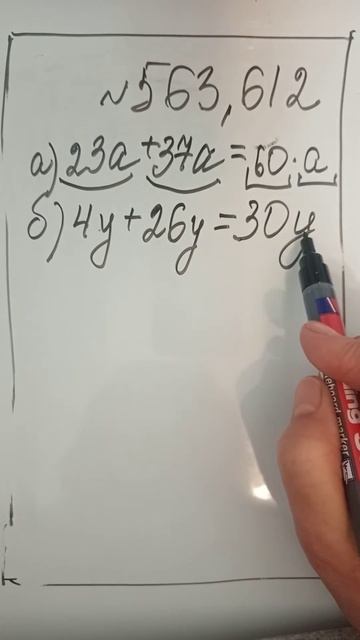 №563,612
а) 23a + 37a = 60 · a
б) 4y + 26y = 30y
board marker